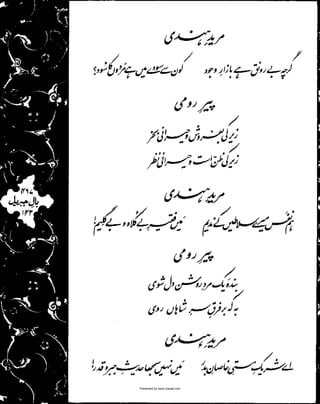 مریدِ ہندی
گرچہ بے رونق ہے بازارِ وجود
کون سے سودے میں ہے مَردوں کا سُود؟
پیرِ رومی
زیرکی بفروش و حیرانی بخر
زیرکی ظنّ است و حیرانی نظر
مریدِ ہندی
ہم نفَس میرے سلاطیں کے ندیم
مَیں فقیرِ بے کلاہ و بے گلیم!
پیرِ رومی
بندۂ یک مردِ روشن دل شوی
بہ کہ بر فرقِ سرِ شاہاں روی
مریدِ ہندی
اے شریکِ مستیِ خاصانِ بدر
مَیں نہیں سمجھا حدیثِ جبر و قدر!
بالِ جبریل
۱۴۳
Presented by www.ziaraat.com